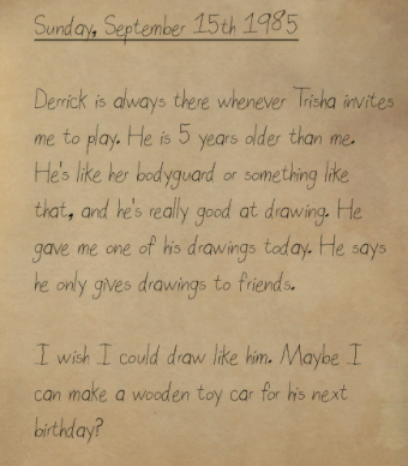 Sunday, September 15th 1985
Derrick is always there whenever Trisha invites
me to play. He is 5 years older than me.
He's like her bodyguard or something like
that, and he's really good at drawing. He
gave me one of his drawings today. He says
he only gives drawings to friends.
I wish I could draw like him. Maybe I
can make a wooden toy car for his next
birthday?